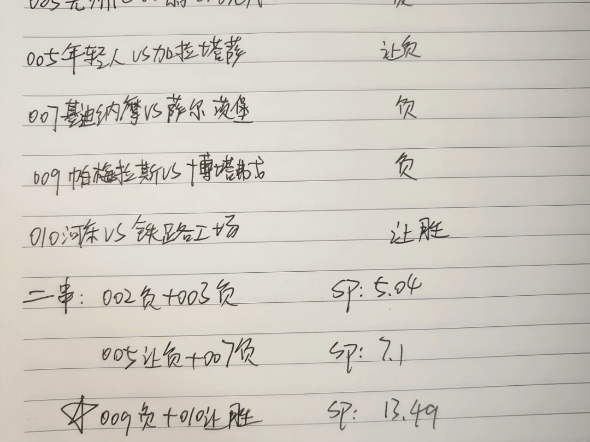 005年轻人VS加拉塔萨 让负
007基迪纳摩VS萨尔茨堡 负
009帕梅拉斯VS博塔弗戈 负
010河床VS铁路工场 让胜
二串: 002负+003负 SP: 5.04
005让负+007负 SP: 7.1
☆009负+010让胜 SP: 13.49